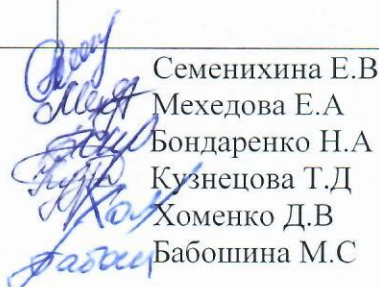 Семенихина Е.В
Мехедова Е.А
Бондаренко Н.А
Кузнецова Т.Д
Хоменко Д.В
Бабошина М.С